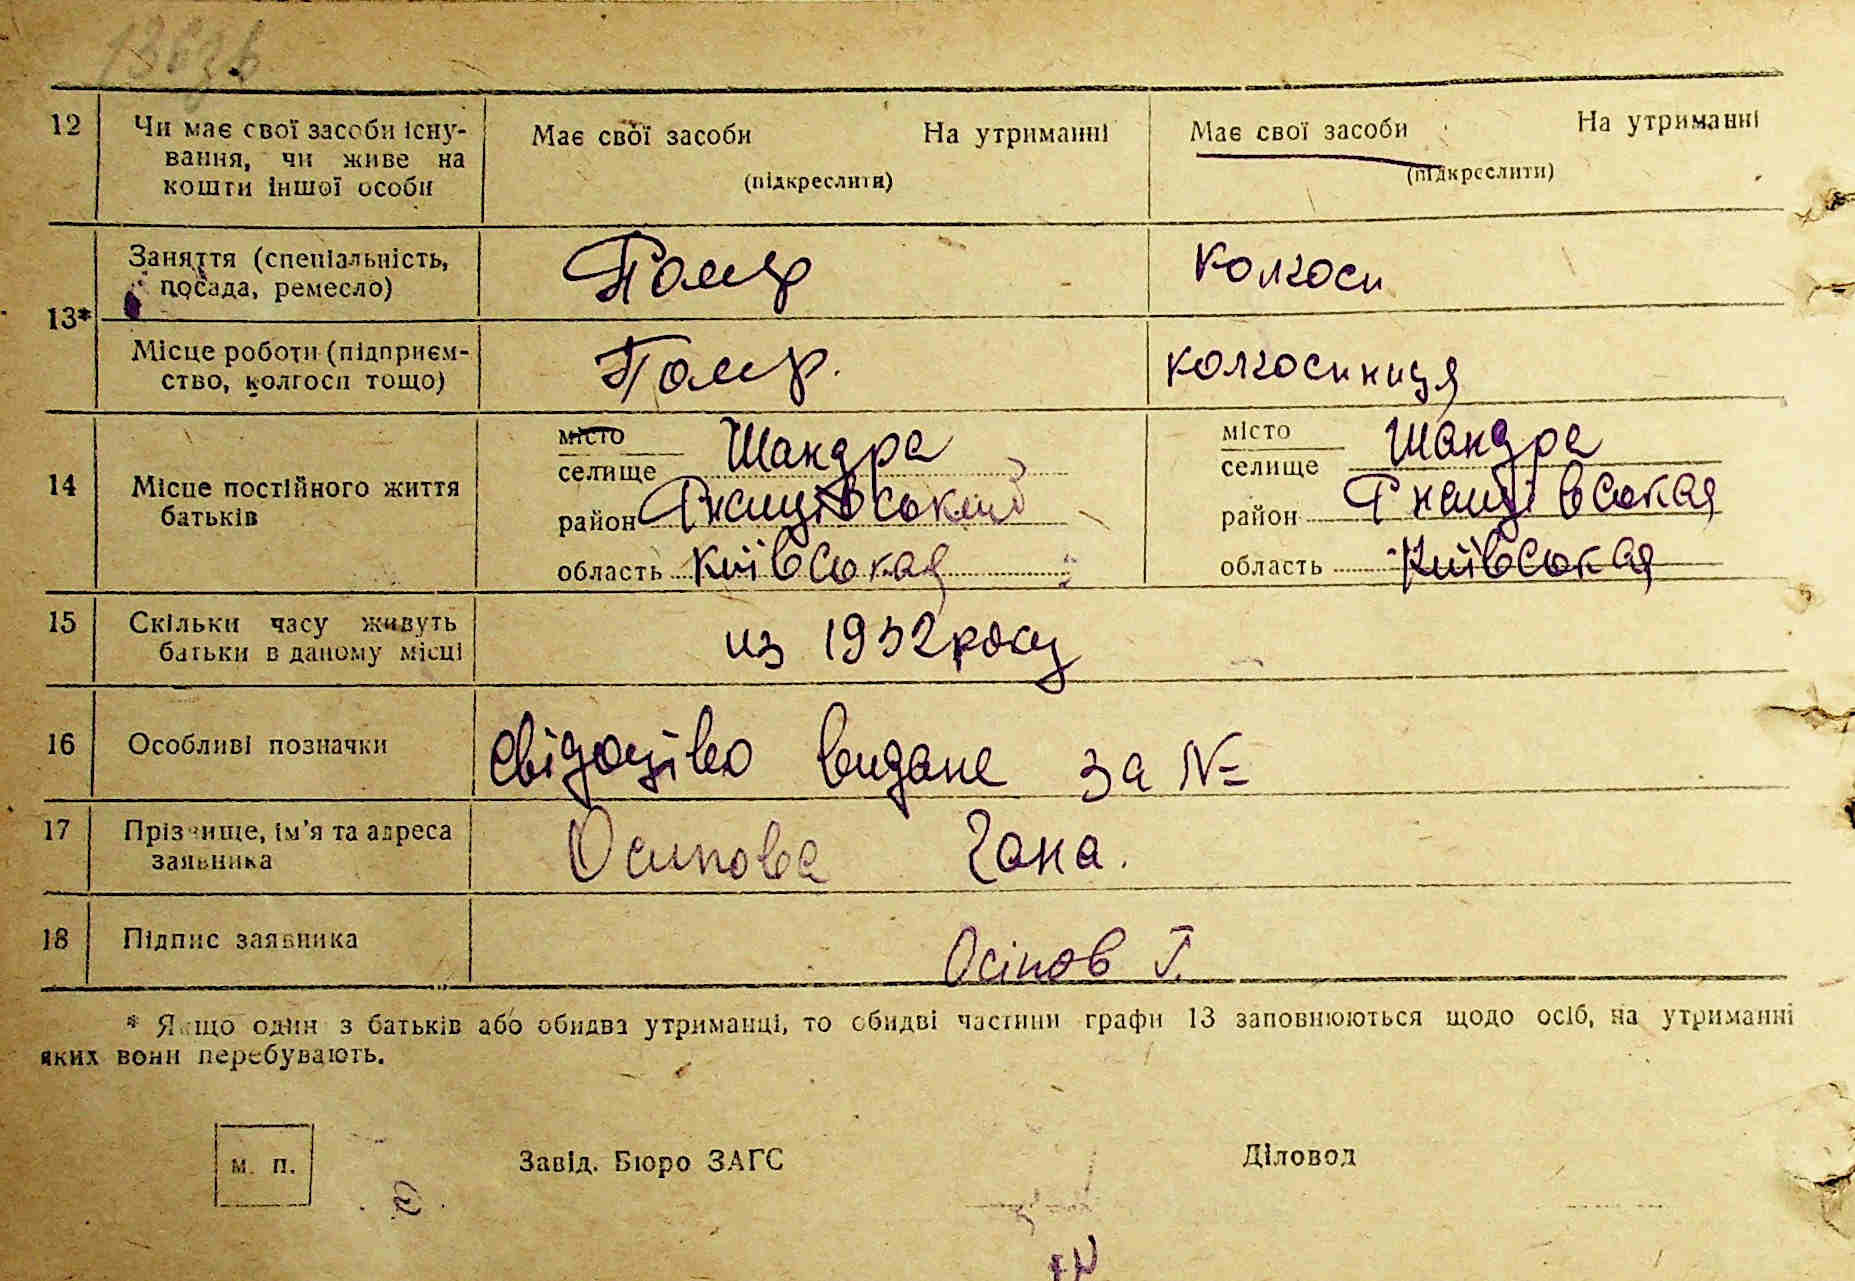 12 Чи має свої засоби існу- Має свої засоби На утриманні Має свої засоби На утриманні
вання, чи живе на (підкреслити) (підкреслити)
кошти іншої особи
13*
Заняття (спеціальність, Помер колгосп
посада, ремесло)
Місце роботи (підприєм- Помер. колгоспниця
ство, колгосп тощо)
14 Місце постійного життя
батьків
місто Шандра місто Шандра
селище селище
район район
область Київська область Київська
15 Скільки часу живуть из 1932 року
батьки в даному місці
16 Особливі позначки видане за №
17 Прізвище, ім'я та адреса Осипова Гана.
заявника
18 Підпис заявника Осіпов Г.
* Якщо один з батьків або обидва утриманці, то обидві частини графи 13 заповнюються щодо осіб, на утриманні
яких вони перебувають.
м. п. Завід. Бюро ЗАГС Діловод